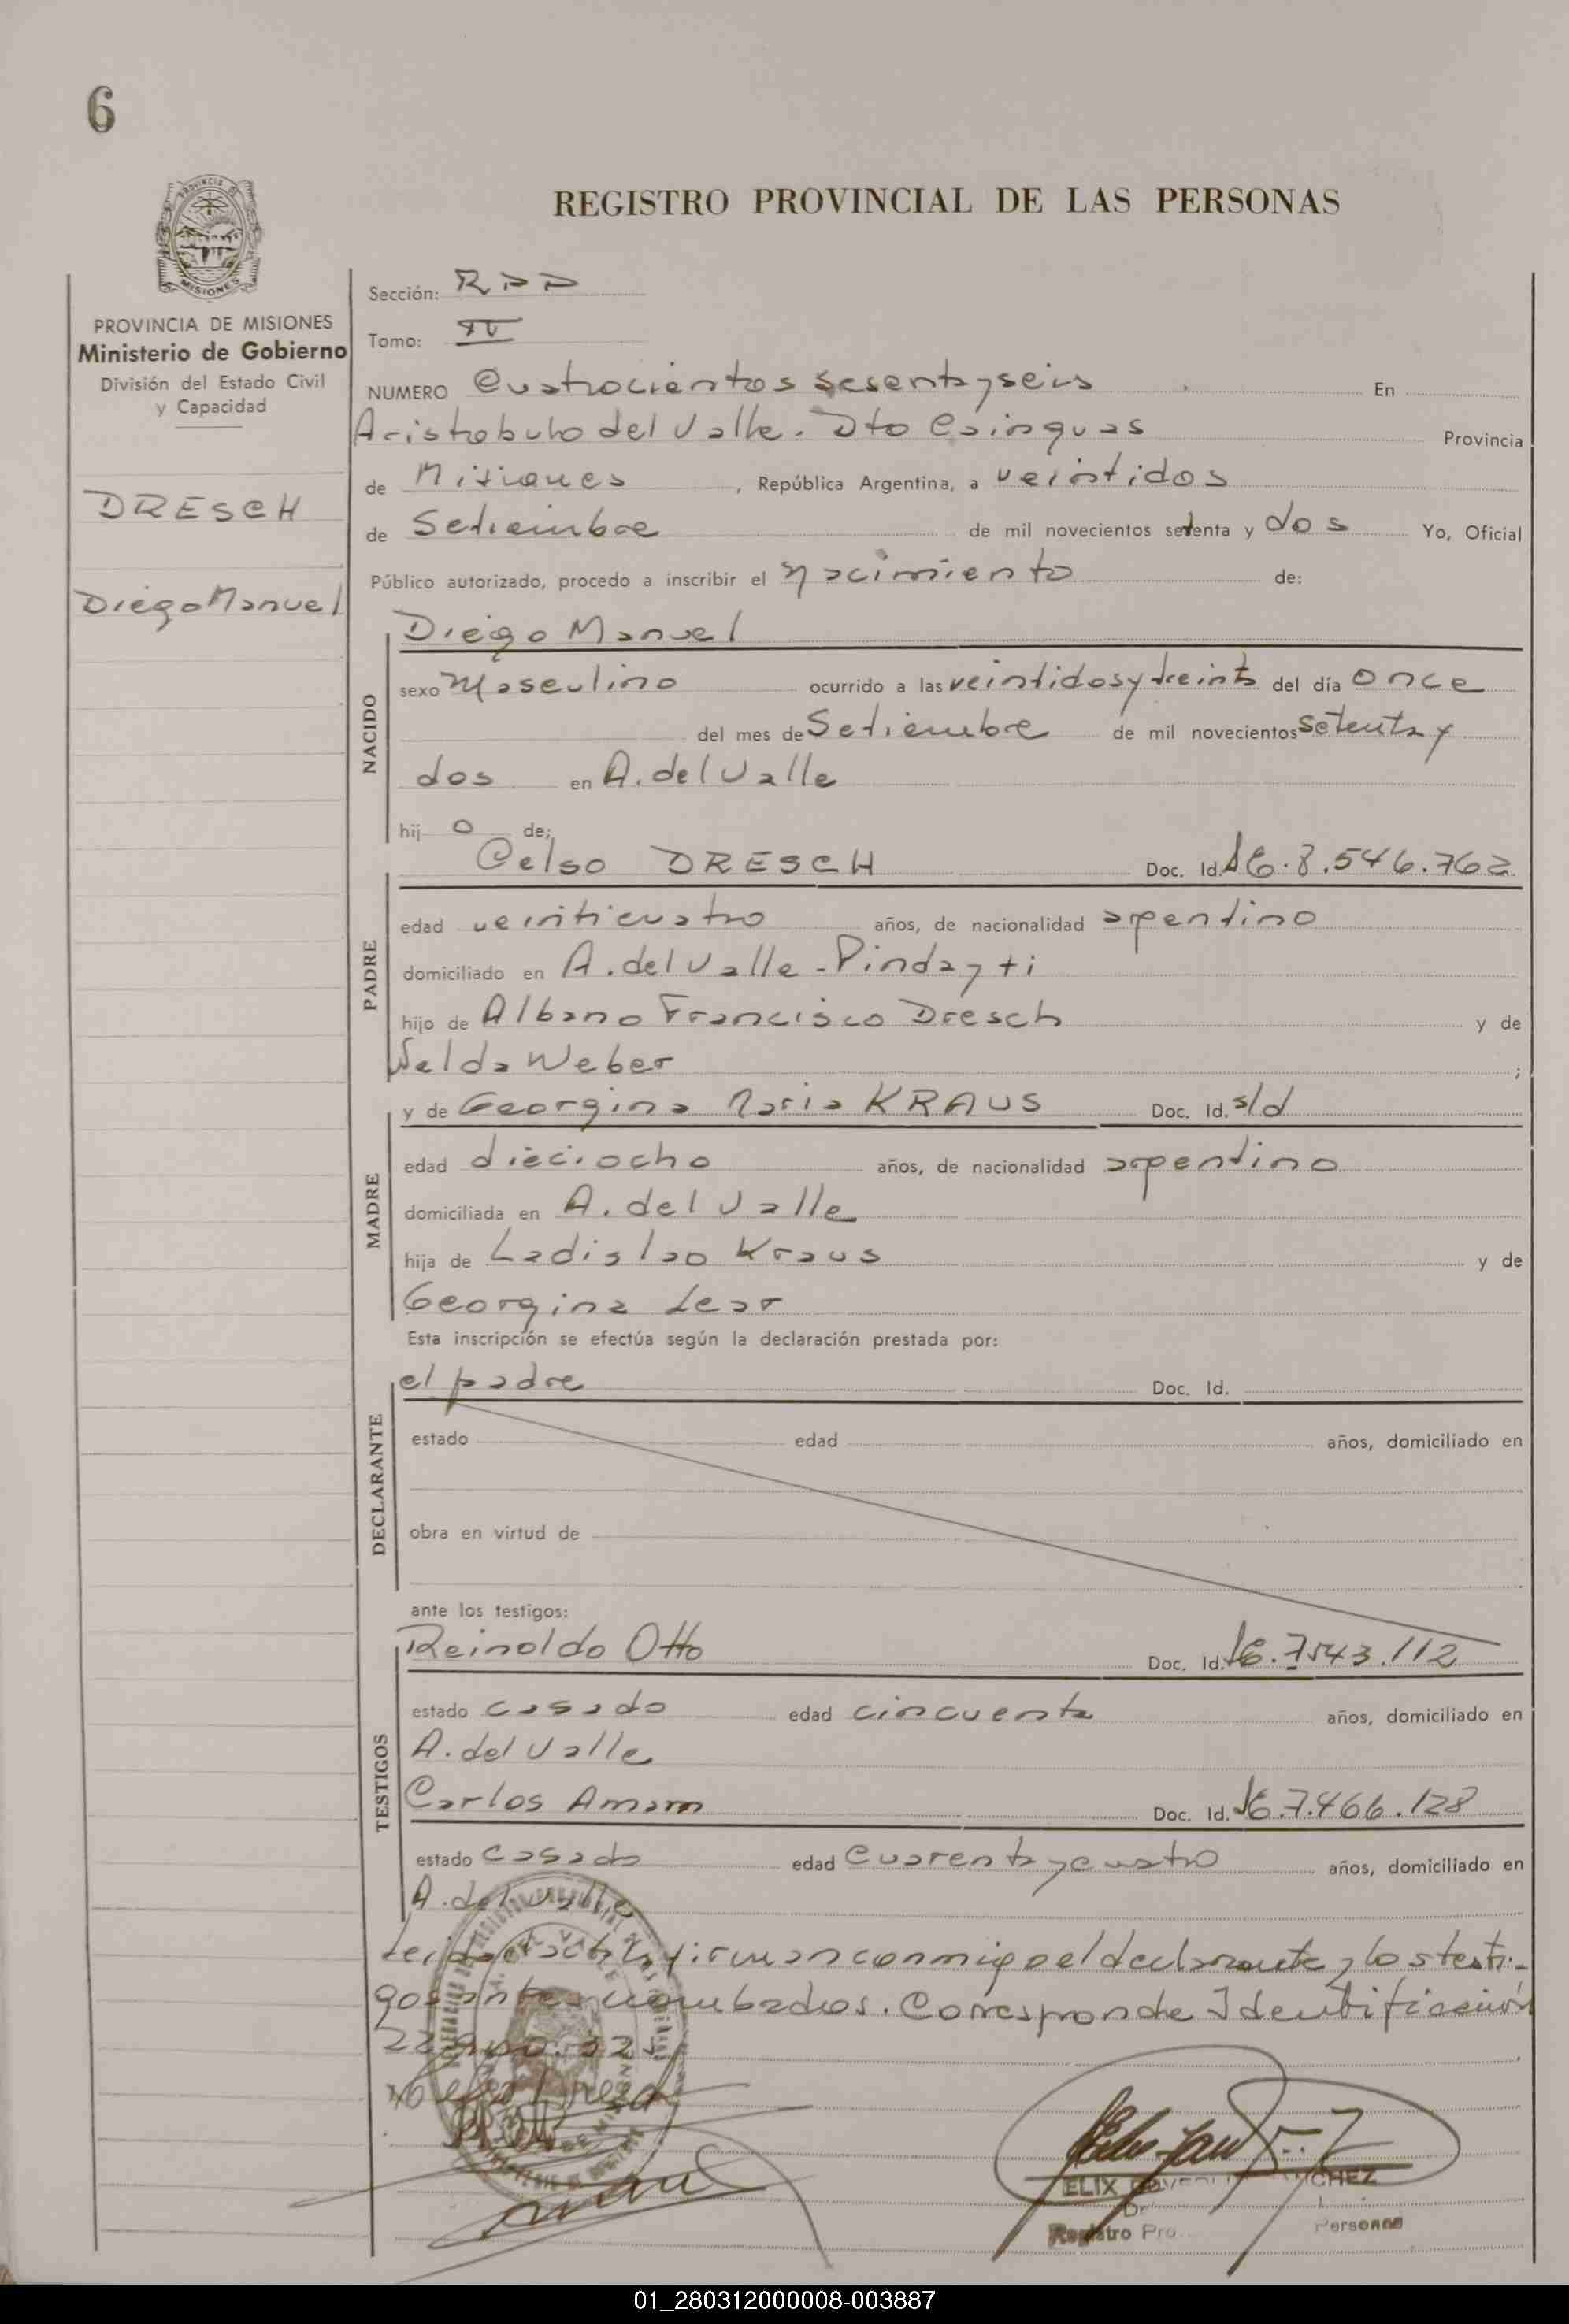 6
PROVINCIA DE
MISIONES
REGISTRO PROVINCIAL DE LAS PERSONAS
PROVINCIA DE MISIONES
Ministerio de Gobierno
División del Estado Civil
y Capacidad
DRESCH
Diego Manuel
Sección: RPP
Tomo: IV
NUMERO Cuatrocientos sesenta y seis En
Aristobulo del Valle. Dto Cainguas Provincia
de Misiones, República Argentina, a veintidos
de Setiembre de mil novecientos setenta y dos Yo, Oficial
Público autorizado, procedo a inscribir el nacimiento de:
NACIDO
Diego Manuel
sexo Masculino ocurrido a las veintidos y treinta del día once
del mes de Setiembre de mil novecientos setenta y
dos en A. del Valle
hij o de:
PADRE
Celso DRESCH Doc. Id. 8.546.762
edad veinticuatro años, de nacionalidad argentino
domiciliado en A. del Valle - Pindayti
hijo de Albano Francisco Dresch y de
Selda Weber ;
MADRE
y de Georgina Maria KRAUS Doc. Id. s/d
edad dieciocho años, de nacionalidad argentino
domiciliada en A. del Valle
hija de Ladislao Kraus y de
Georgina Lear
Esta inscripción se efectúa según la declaración prestada por:
DECLARANTE
el padre Doc. Id.
estado edad años, domiciliado en
obra en virtud de
ante los testigos:
TESTIGOS
Reinoldo Otto Doc. Id. 7.543.112
estado casado edad cincuenta años, domiciliado en
A. del Valle
Carlos Amam Doc. Id. 7.466.128
estado casado edad cuarenta y cuatro años, domiciliado en
A. del Valle
Leida el acta la firman conmigo el declarante y los testi-
gos antes nombrados. Corresponde Identificación
ELIX SANCHEZ
Registro Pro Personas
01_280312000008-003887